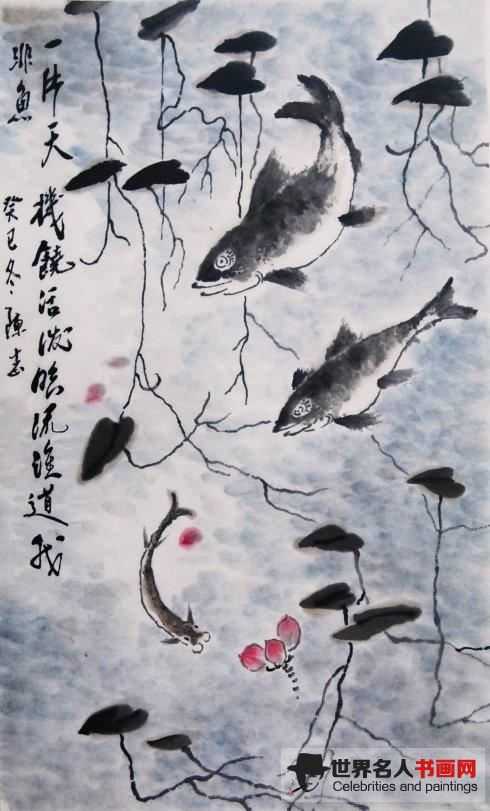 一片天機饒活潑臨流誰道我
非魚
癸巳冬陳
世界名人书画网
Celebrities and paintings